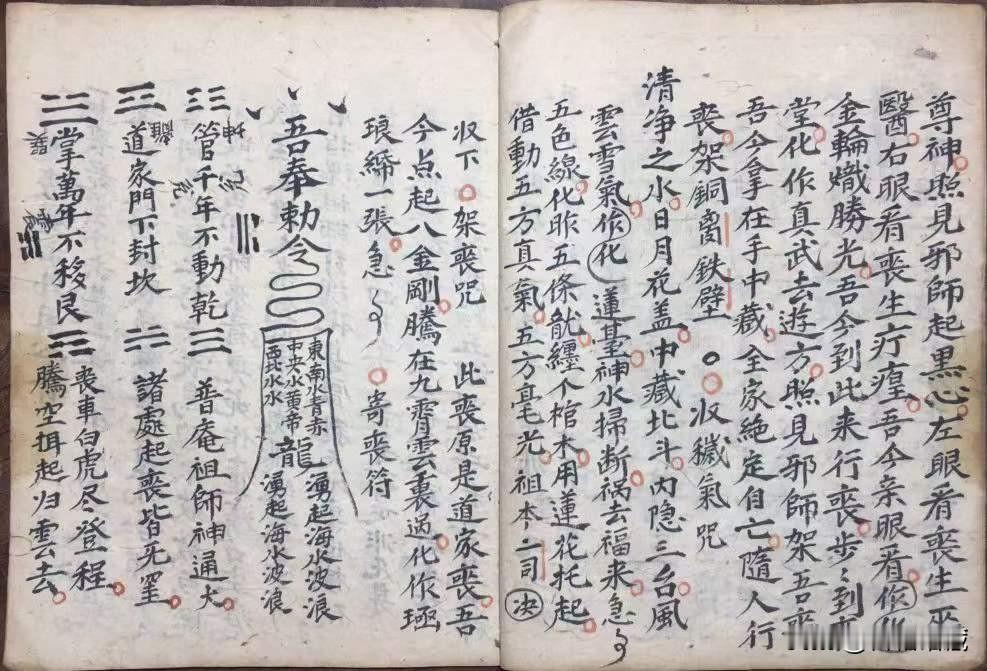 尊神。照見邪師起黑心。左眼看喪生巫
醫。右眼看喪生疔瘽。吾今亲眼看作化
金輪熾勝光。吾今到此来行喪。步〻到
堂。化作真武去遊方。照見邪師架吾喪
吾今拿在手中藏。全家絶定自亡。隨人行
喪。架銅墻鉄壁。 收穢氣咒
清净之水。日月花盖。中藏北斗。内隐三台。風
雲雪氣。作化 蓮基神水。掃断禍去福来。急〻
五色線化昨五条龍。纏个棺木。用蓮花托起
借動五方真氣。五方毫光。祖本二司 决
收下。架喪咒 此喪原是道家喪。吾
今点起八金剛。騰在九霄雲裏過。化作極
琅縧一張。急〻 寄喪符
吾奉勅令
東南水青赤
中央水黄帝
西北水水
龍
湧起海水波浪
湧起海水波浪
管千年不動乾 普庵祖師神通大
道家門下封坎 諸處起喪皆无罣
掌萬年不移艮 喪車白虎尽登程
騰空揖起归雲去